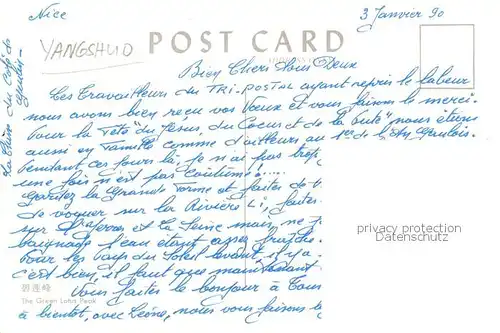 Nice 3 Janvier 90
YANGSHUO
POST CARD
Bien Chers Tous Deux
Les Travailleurs du TRI-POSTAL ayant repris le labeur
nous avons bien reçu vos Voeux et vous faisons le merci.
Pour la Fête "du Jésus, du Coeur et de la Buté" nous étions
aussi en famille comme d'ailleurs au 1er de l'An Gaulois.
Pendant ces jours là, je n'ai pas trop
une fois n'est pas coutume!...
Gardez la Grande Forme et faites de
de voguer sur la Rivière Li, faites
sur et la Seine main ne
baignade l'eau étant assez fraîche.
Pour les Pays du Soleil Levant, il y a
c'est bien, il faut que maintenant
Vous faites le bonjour à Tous
à bientôt, avec Leone, nous vous faisons
du Café de
privacy protection
Datenschutz
碧莲峰
The Green Lotus Peak